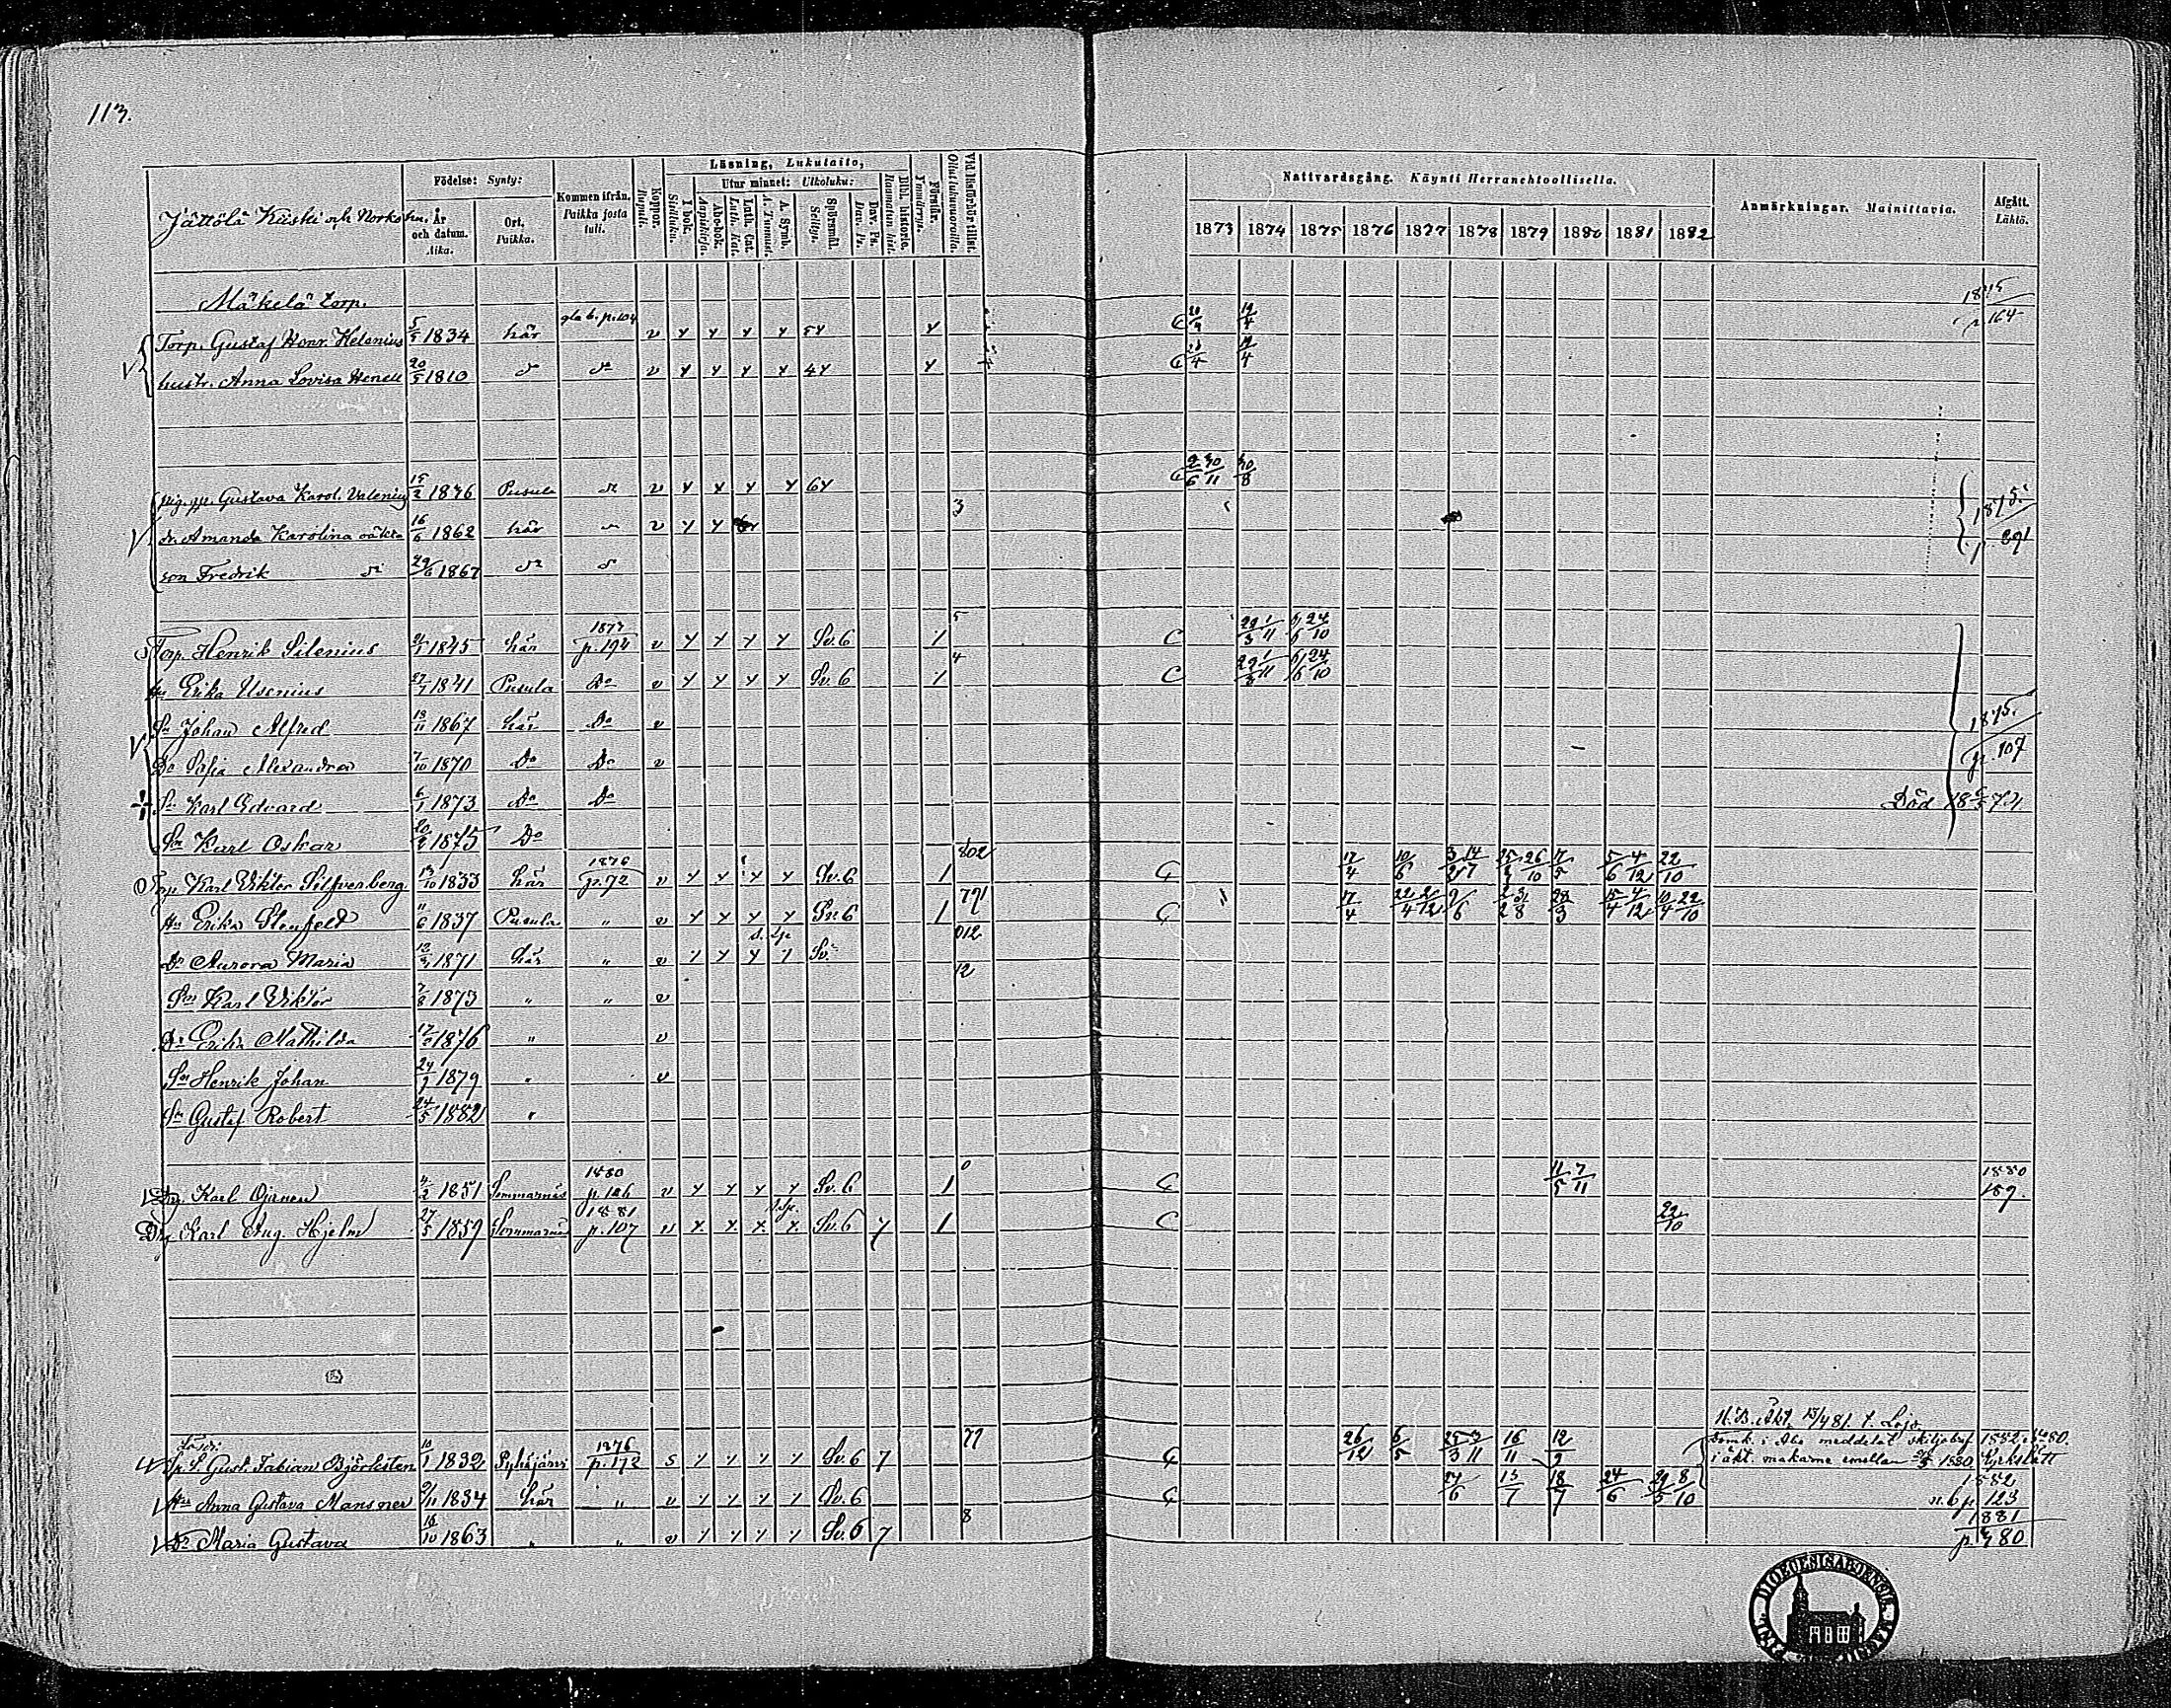 113.
Jättölä Kuski och Norkos hm.
Födelse: Synty:
År och datum. Aika.
Ort. Paikka.
Kommen ifrån. Paikka josta tuli.
Koppor. Rupuli.
Läsning, Lukutaito,
Utur minnet: Ulkoluku:
I bok. Sisäluku.
Abc-bok. Aapiskirja.
Luth. Cat. Luth. Kat.
A. Symb. A. Tunnust.
Spörsmål. Selitys.
Dav. Ps. Dav. Ps.
Bibl. historie. Raamatun hist.
Förstår. Ymmärrys.
Vid läsförhör tillst. Ollut lukuvuorolla.
Nattvardsgång. Käynti Herranehtoollisella.
1873 1874 1875 1876 1877 1878 1879 1880 1881 1882
Anmärkningar. Mainittavia.
Afgått. Lähtö.
Mäkelä torp. 1875
Torp. Gustaf Henr. Helenius 5/5 1834 här gla b. p. 104 v y y y y 5y y C 20/4 12/4 p 164
hustr. Anna Lovisa Henell 20/5 1810 do do v y y y y 4y y C 20/4 12/4
pig. Gustava Karol. Valenius 15/2 1836 Pusula do v y y y y 6y C 2/6 30/11 30/8
dr. Amanda Karolina oäkta 16/6 1862 här do v y y 3 1875.
son Fredrik do 29/6 1867 do do p. 391
Torp. Henrik Silenius 1845 här 1873 p. 194 v y y y y Sv. 6 1 5 C 29/3 1/11 6/6 24/10
Hu Erika Usenius 27/7 1841 Pusula Do v y y y y Sv. 6 1 4 C 29/3 1/11 6/6 24/10
Sn Johan Alfred 13/11 1867 här Do v 1875.
Dr Sofia Alexandra 7/10 1870 Do Do v p. 107
Sn Karl Edvard 6/1 1873 Do Do Död
Son Karl Oskar 20/2 1875 Do
Torp Karl Viktor Silfverberg 13/10 1833 här 1876 p. 72 v y y y y Sv. 6 1 802 C 17/4 10/6 3/3 14/7 26/10 17/5 5/6 4/12 22/10
Hu Erika Stenfelt 11/6 1837 Pusula " v y y y y Sv. 6 1 791 C 17/4 22/4 2/12 9/6 2/2 3/8 28/3 15/4 4/12 10/4 22/10
Dr Aurora Maria 12/3 1871 här " v y y y y Sv. 012
Sn Karl Viktor 7/8 1873 " " v 12
Dr Erika Mathilda 17/2 1876 " v
Sn Henrik Johan 24/9 1879 " v
Sn Gustaf Robert 24/5 1882 "
Drg Karl Ojanen 4/2 1851 Sommarnäs 1880 p. 126 v y y y y Sv. 6 1 0 C 11/5 7/11 1880 189.
Drg Karl Aug. Hjelm 27/5 1859 Sommarnäs 1881 p. 107 v y y y y Sv. 6 7 1 C 22/10
N.B. Äkt. 15/4 81. t. Lojo
Sp. S. Gust. Fabian Björksten 10/1 1832 Pyhäjärvi 1876 p. 172 s y y y y Sv. 6 7 77 C 26/12 6/5 25/3 3/11 16/11 12/9 Domk. i Åbo meddelat skiljobref i äkt. makarne emellan 1880 Kyrkslätt
Hu Anna Gustava Mansner 9/11 1834 här " v y y y y Sv. 6 C 24/6 13/7 18/7 24/6 29/5 8/10 1882 n. b p 123
Dr Maria Gustava 16/10 1863 " " v y y y y Sv. 6 7 8 1881 p. 480
DIOECESIS ABOENSIS